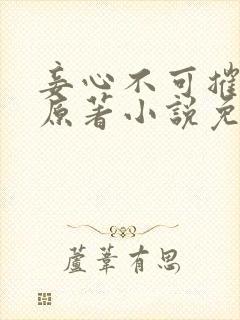 妾心不可摧
原著小說免
蘆葦有思